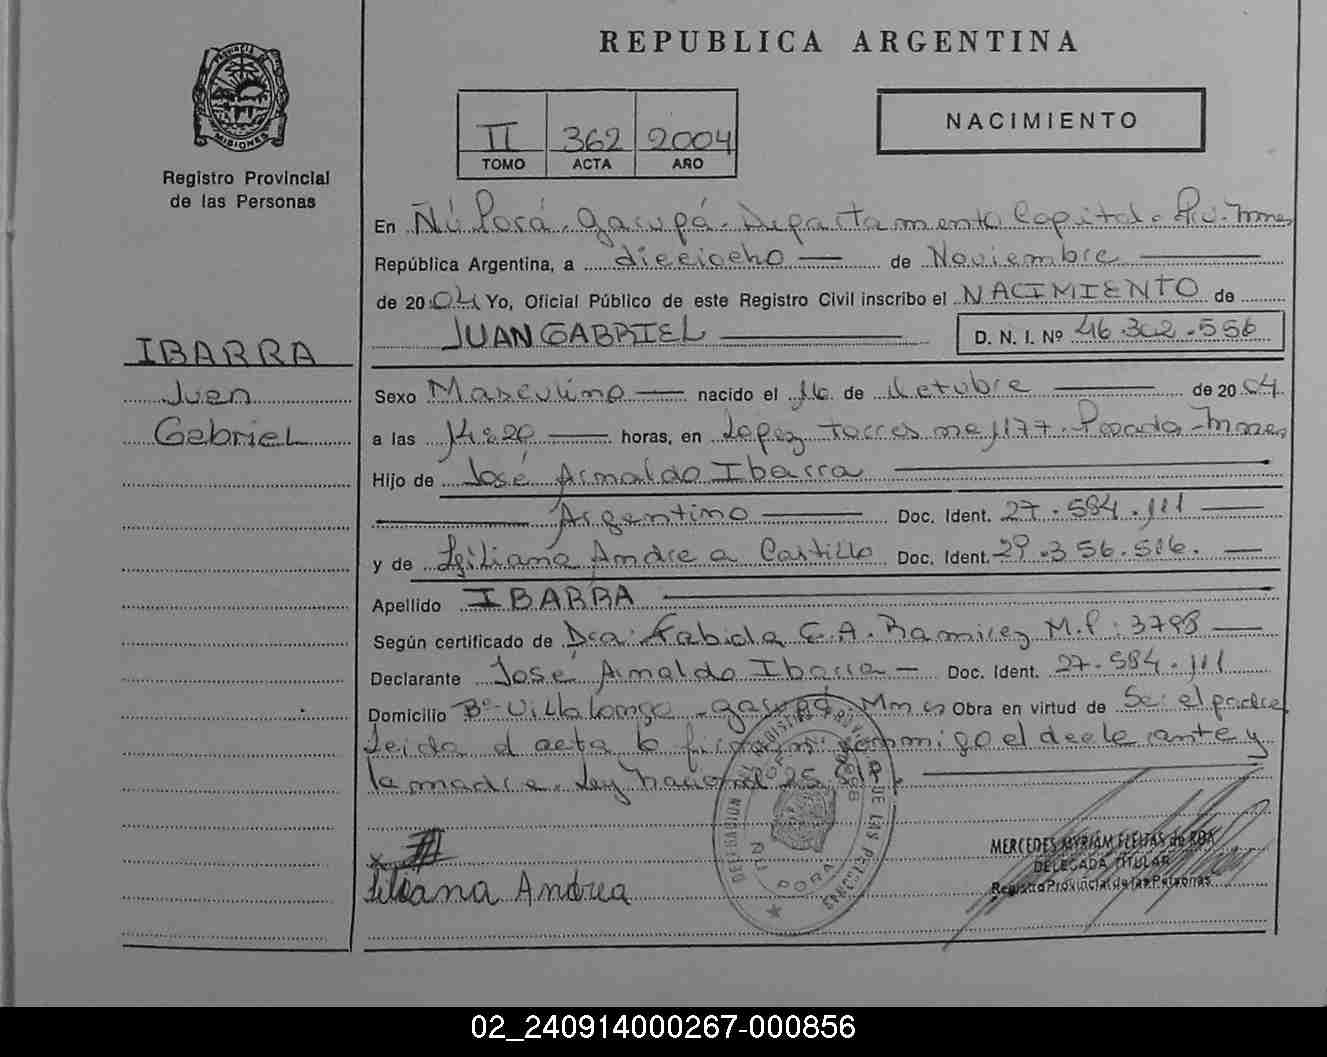 REPUBLICA ARGENTINA
PROVINCIA DE
MISIONES
Registro Provincial
de las Personas
NACIMIENTO
II 362 2004
TOMO ACTA AÑO
En Ñú Porá - Garupá - Departamento Capital - Mnes
República Argentina, a dieciocho de Noviembre
de 2004 Yo, Oficial Público de este Registro Civil inscribo el NACIMIENTO de
JUAN GABRIEL D. N. I. Nº 46.302.556
IBARRA
Juan
Gabriel
Sexo Masculino nacido el 16 de octubre de 2004
a las 14:20 horas, en Lopez Torres 1177 - Posadas - Mnes
Hijo de José Arnaldo Ibarra
Argentino Doc. Ident. 27.584.111
y de Liliana Andrea Castillo Doc. Ident. 29.356.516.
Apellido IBARRA
Según certificado de Dra. Fabiola E. A. Ramirez M.P: 3798
Declarante José Arnaldo Ibarra Doc. Ident. 27.584.111
Domicilio Bº Villalonga - Garupá Mnes Obra en virtud de Ser el padre
Leida el acta la firman conmigo el declarante y
la madre. Ley Nacional
DELEGACION REGISTRO PROV. DE LAS PERSONAS
ÑU PORA
MERCEDES MYRIAM FLEITAS de ROA
DELEGADA TITULAR
Registro Provincial de las Personas
x
Liliana Andrea
02_240914000267-000856